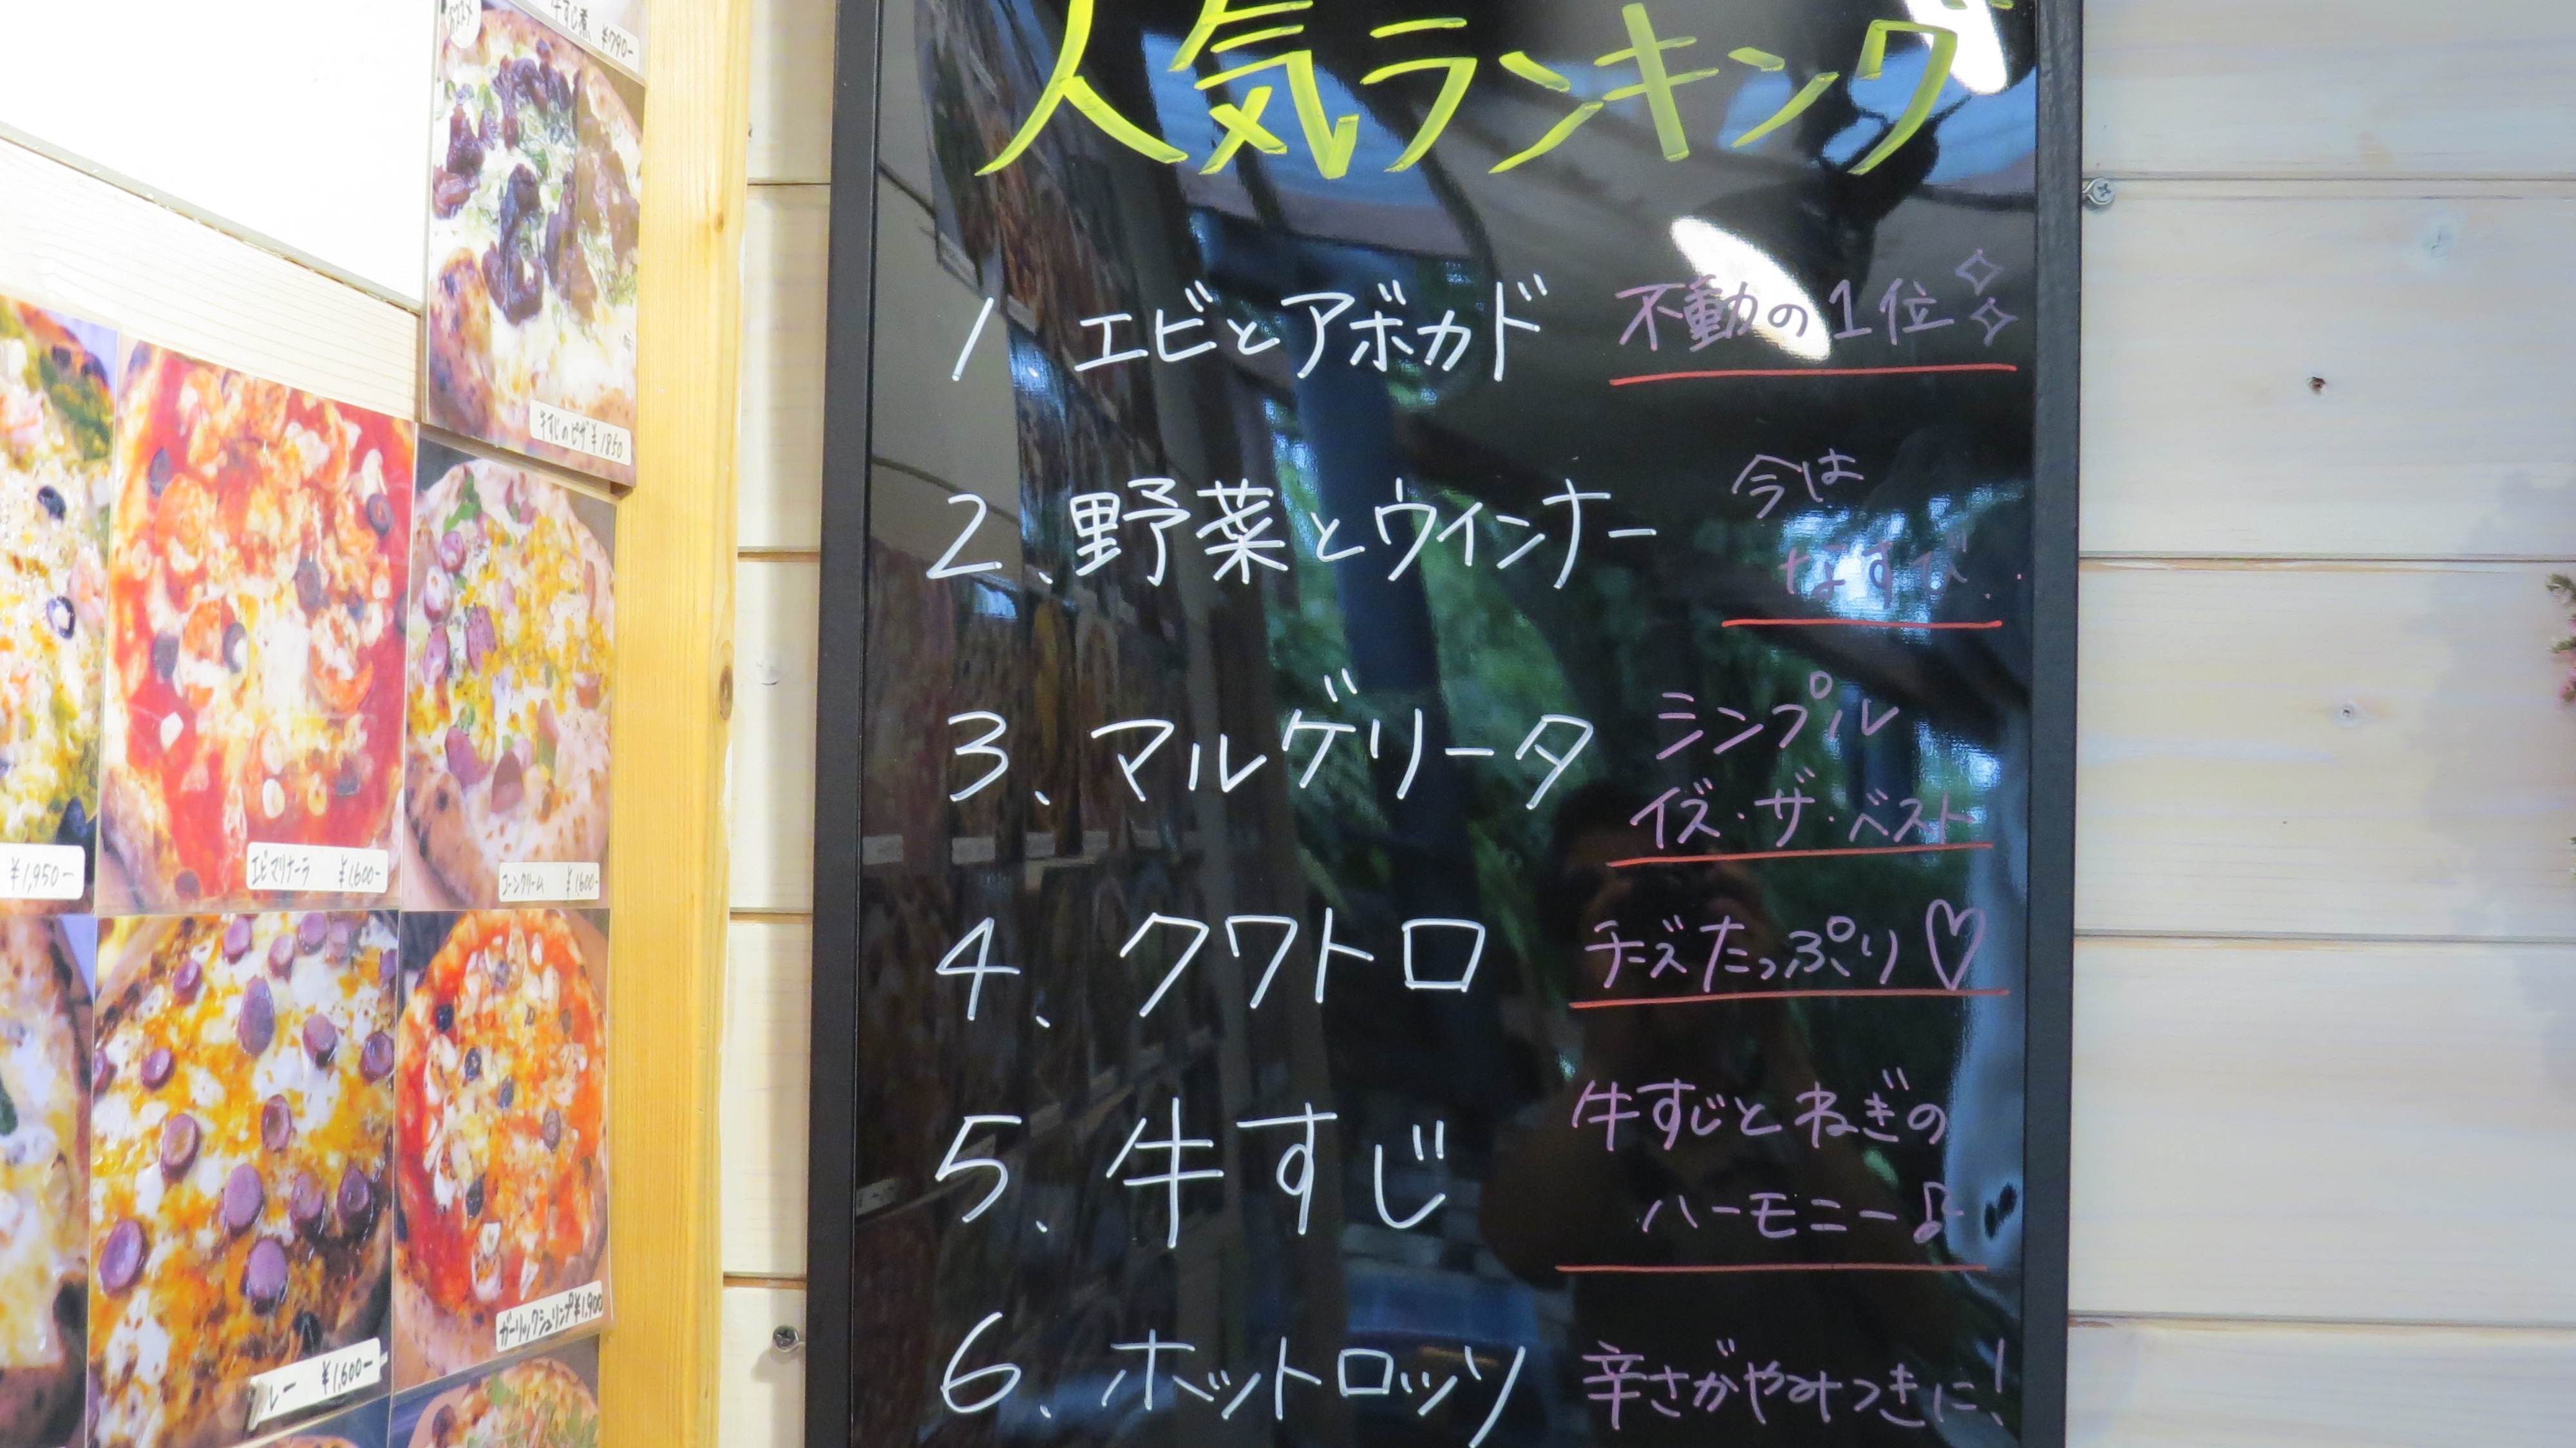 人気ランキング
1、エビとアボカド 不動の1位
2、野菜とウインナー 今は
なすび
3、マルゲリータ シンプル
イズ・ザ・ベスト
4、クワトロ チーズたっぷり♡
5、牛すじ 牛すじとねぎの
ハーモニー♪
6、ホットロッソ 辛さがやみつきに!
オススメ
牛すじ煮 ¥790-
牛すじのピザ ¥1850
¥1,950-
エビマリナーラ ¥1,600-
コーンクリーム ¥1,600-
レー ¥1,600-
ガーリックシュリンプ ¥1,900